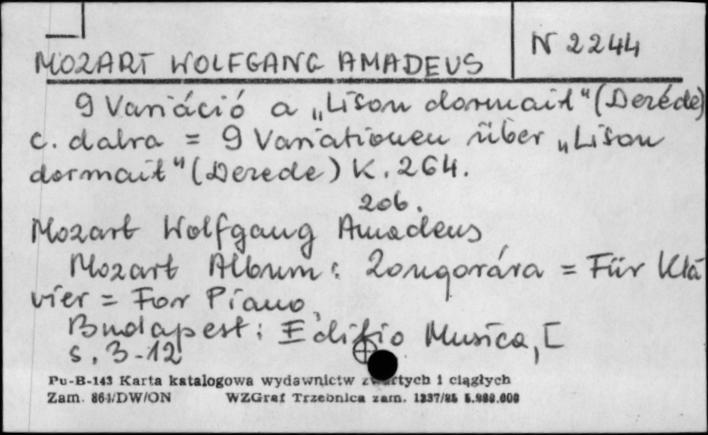 MOZART WOLFGANG AMADEUS
N 2244
9 Variáció a „Lison dormait" (Dezéde)
c. dalra = 9 Variationen über „Lison
dormait" (Dezede) K. 264.
206.
Mozart Wolfgang Amadeus
Mozart Album: Zongorára = Für Kla
vier = For Piano.
Budapest: Editio Musica, [
s. 3-12
Pu-B-143 Karta katalogowa wydawnictw zwartych i ciągłych
Zam. 864/DW/ON WZGraf Trzebnica zam. 1237/85 5.000.000